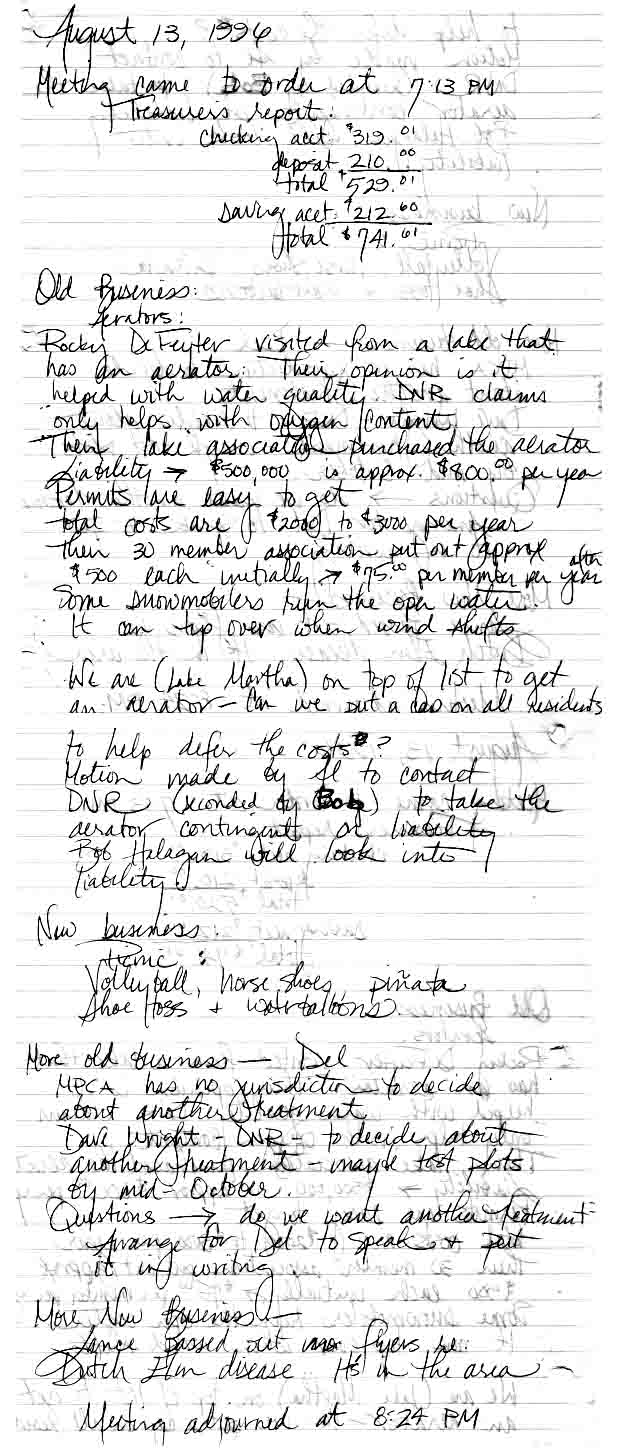 August 13, 1996
Meeting came to order at 7:13 PM
Treasurer's report:
checking acct $319.01
deposit 210.00
total $529.01
saving acct $212.60
total $741.61
Old Business:
Aerators:
Rocky DeFeyter visited from a lake that
has an aerator. Their opinion is it
helped with water quality. DNR claims
only helps with oxygen content
Their lake association purchased the aerator
Liability → $500,000 is approx. $800.00 per year
Permits are easy to get
total costs are $2000 to $3000 per year
Their 30 member association put out approx
$500 each initially → $75.00 per member per year after
Some snowmobilers run the open water.
It can tip over when wind shifts
We are (Lake Martha) on top of list to get
an aerator - Can we put a cap on all residents
to help defer the costs?
Motion made by Al to contact
DNR (seconded by Bob) to take the
aerator contingent on liability
Bob Halagan will look into
liability.
New business:
Picnic:
Volleyball, horse shoes, piñata
Shoe toss + waterballoons.
More old business — Del
MPCA has no jurisdiction to decide
about another treatment
Dave Wright - DNR - to decide about
another treatment - maybe test plots
by mid-October.
Questions → do we want another treatment
Arrange for Del to speak + put
it in writing
More New Business —
Lance passed out flyers re:
Dutch Elm disease. It's in the area
Meeting adjourned at 8:24 PM